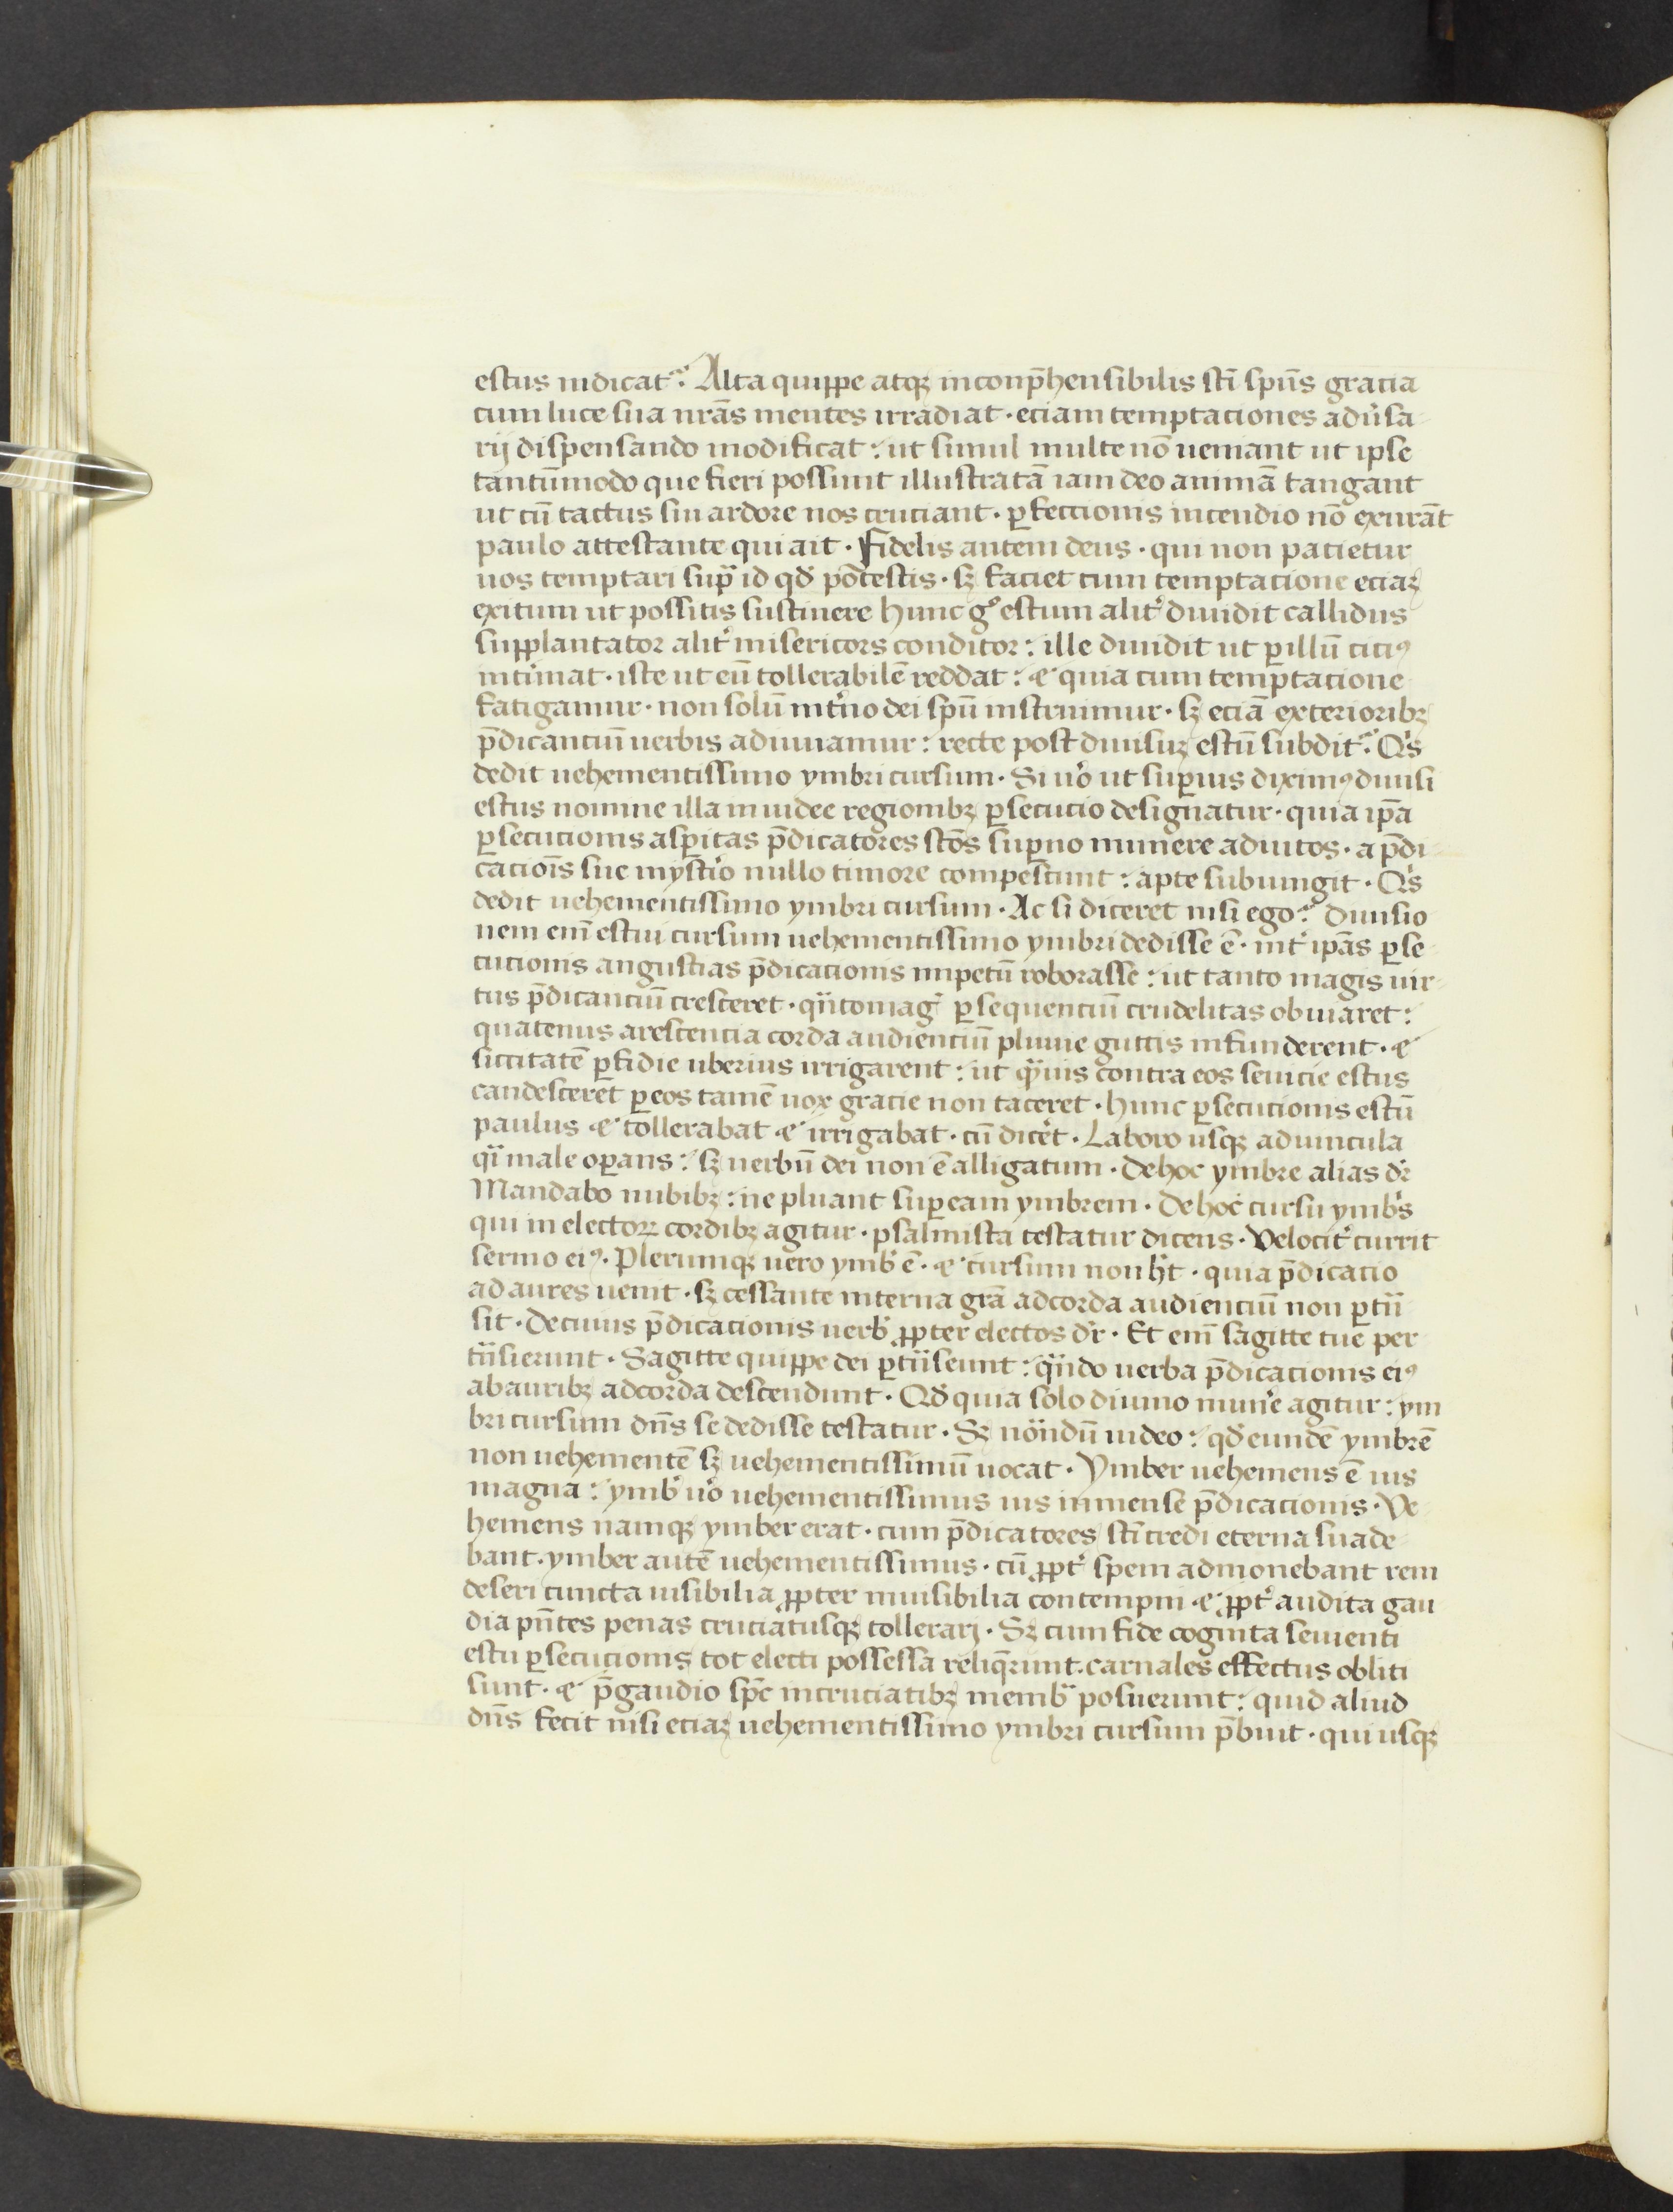 estus iudicat᷑. Alta quippe atqꝫ inconp̄hensibilis sc̄i sp̄us gracia
cum luce sua nr̄as mentes irradiat · eciam temptaciones adu̓sa-
rij dispensando modificat : ut simul multe nō ueniant ut ipse
tantūmodo que fieri possunt illustratā iam deo animā tangant
ut cū tactus sui ardore nos cruciant · ꝑfectionis incendio nō exurāt
paulo attestante qui ait · Fidelis autem deus · qui non patietur
uos temptari supᷓ id qd̓ potestis · sꝫ faciet cum temptacione eciaꝫ
exitum ut possitis sustinere Hunc gͦ estum alit̓ diuidit callidus
supplantator alit̓ misericors conditor : ille diuidit ut ꝑ illū citiꝰ
intimat · iste ut eū tollerabilē reddat : & quia cum temptacione
fatigamur · non solū int̓no dei sp̄u instruimur · sꝫ eciā exterioribꝫ
p̄dicanciū uerbis adiuuamur : recte post diuisuꝫ estū subdit᷑. Qͥs
dedit uehementissimo ymbri cursum · Si uͦo ut suꝑius diximꝰ diuisi
estus nomine illa in iudee regionibꝫ ꝑsecucio designatur · quia ip̄a
ꝑsecucionis asꝑitas p̄dicatores sc̄os suꝑno munere adiutos · a p̄di-
cacioīs sue myst̓io nullo timore compescunt : apte subiungit · Qͥs
dedit uehementissimo ymbri cursum · Ac si diceret nisi ego᷑. Diuisio
nem em̄ estui cursum uehementissimo ymbri dedisse ē · int̓ ip̄as ꝑse-
cucionis angustias p̄dicacionis impetū roborasse : ut tanto magis uir-
tus p̄dicanciū cresceret · qᷓnto mag̓ ꝑsequenciū crudelitas obuiaret :
quatenus arescencia corda audienciū pluuie guttis infunderent · &
siccitatē ꝑfidie uberius irrigarent : ut qᷓuis contra eos seuicie estus
candescerēt ꝑ eos tamē uox gracie non taceret · Hunc ꝑsecucionis estū
paulus & tollerabat & irrigabat · cū dicēt · Laboro usqꝫ ad uincula
qᷓi male oꝑans : sꝫ uerbū dei non ē alligatum · De hoc ymbre alias dr̄
Mandabo nubibꝫ : ne pluant suꝑ eam ymbrem · De hoc cursu ymbͥs
qui in electoꝝ cordibꝫ agitur · psalmista testatur dicens · Velocit̓ currit
sermo eiꝰ · Plerumqꝫ uero ymb̓ ē · & cursum non hꝫt · quia p̄dicacio
ad aures uenit · sꝫ cessante interna grā ad corda audienciū non ꝑtᷓn
sit · De cuius p̄dicacionis uerb̓ ꝓpter electos dr̄ · Et em̄ sagitte tue per
tᷓnsierunt · Sagitte quippe dei ꝑtᷓnseunt : qᷓndo uerba p̄dicacionis eiꝰ
ab auribꝫ ad corda descendunt · Qd̓ quia solo diuino mun̓e agitur : ym
bri cursum dn̄s se dedisse testatur · Sꝫ nondū uideo : qd̓ eundē ymbrē
non uehementē sꝫ uehementissimū uocat · Ymber uehemens ē uis
magna : ymb̓ uͦo uehementissimus uis inmense p̄dicacionis · Ve-
hemens namqꝫ ymber erat · cum p̄dicatores sc̄i credi eterna suade-
bant · ymber autē uehementissimus · cū ꝓpt̓ spem admonebant rem
deseri cuncta uisibilia ꝓpter inuisibilia contempni & ꝓpt̓ audita gau
dia pn̄tes penas cruciatusqꝫ tollerarj · Sꝫ cum fide cognita seuienti
estu ꝑsecucionis tot electi possessa reliq̄runt · carnales effectus obliti
sunt · & p̄ gaudio sp̄c in cruciatibꝫ membᷓ posuerunt : quid aliud
dn̄s fecit nisi eciaꝫ uehementissimo ymbri cursum p̄buit · qui usqꝫ